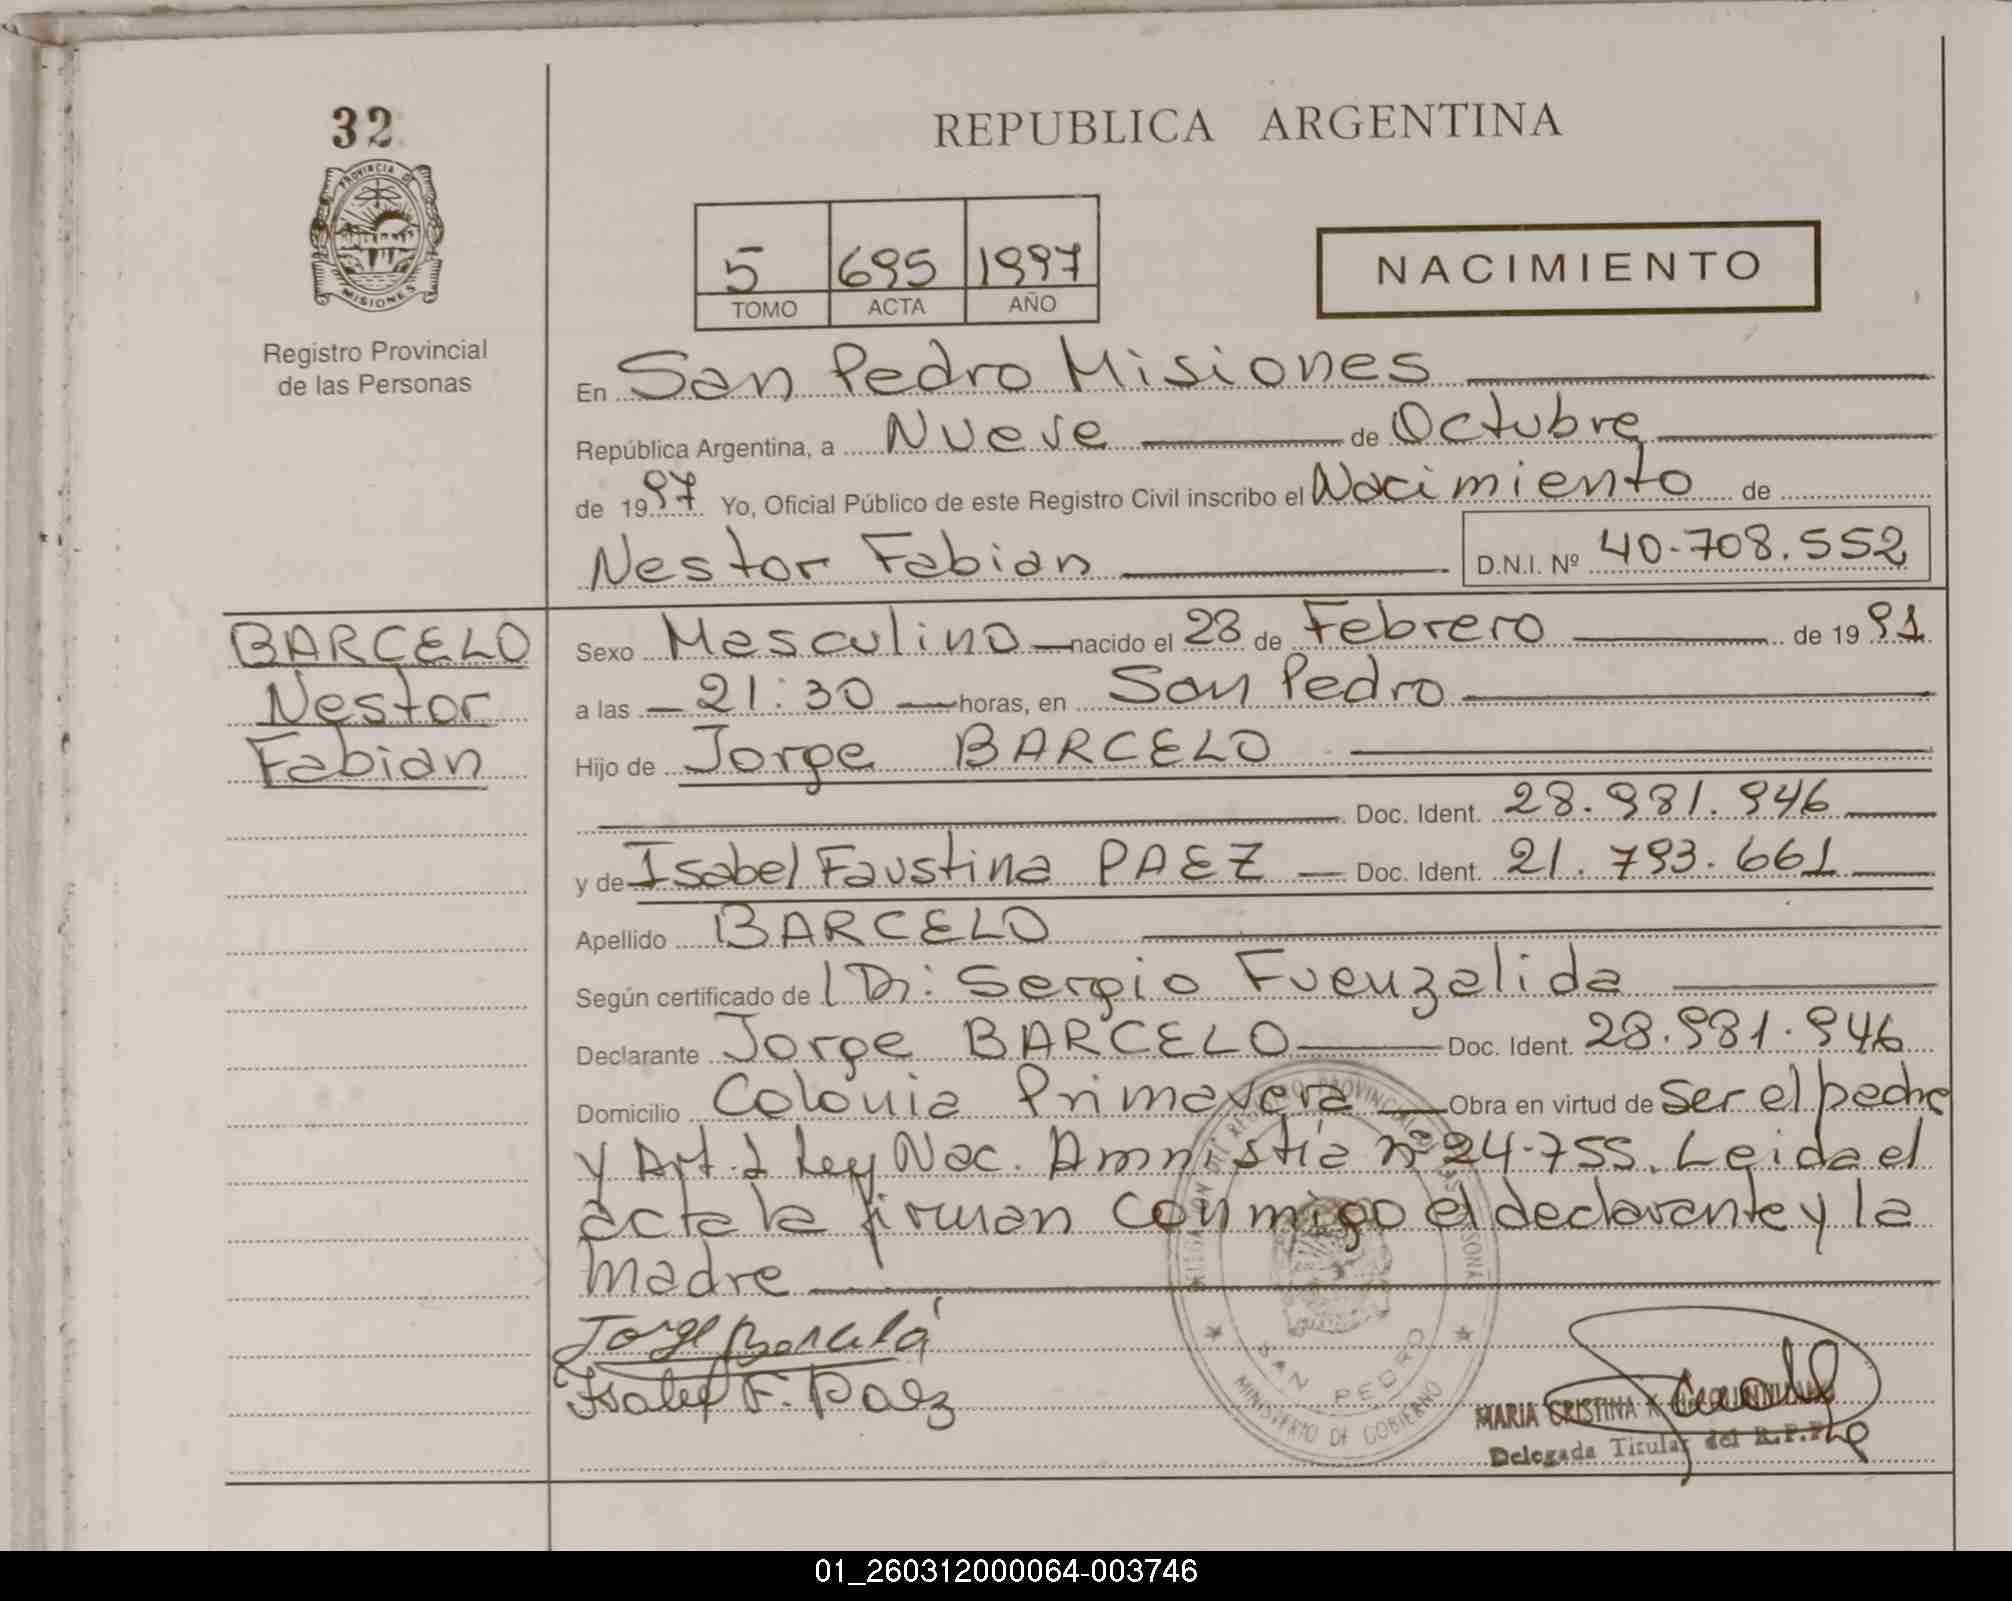 32
PROVINCIA DE
MISIONES
Registro Provincial
de las Personas
REPUBLICA ARGENTINA
5 695 1997
TOMO ACTA AÑO
NACIMIENTO
En San Pedro Misiones
República Argentina, a Nueve de Octubre
de 1997 Yo, Oficial Público de este Registro Civil inscribo el Nacimiento de
Nestor Fabian D.N.I. Nº 40.708.552
BARCELO
Nestor
Fabian
Sexo Masculino nacido el 28 de Febrero de 1991
a las 21:30 horas, en San Pedro
Hijo de Jorge BARCELO
Doc. Ident. 28.981.946
y de Isabel Faustina PAEZ Doc. Ident. 21.793.661
Apellido BARCELO
Según certificado de Dr: Sergio Fuenzalida
Declarante Jorge BARCELO Doc. Ident. 28.981.946
Domicilio Colonia Primavera Obra en virtud de Ser el padre
y Art. 1 Ley Nac. Amnistía nº 24.755. Leida el
acta la firman conmigo el declarante y la
madre
Jorge Barceló
Isabel F. Paez
SAN PEDRO
MINISTERIO DE GOBIERNO
MARIA CRISTINA
Delegada Titular del R.P.P.
01_260312000064-003746